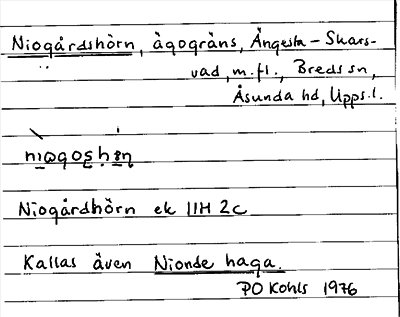 Niogårdshörn, ägogräns, Ängesta - Skars-
vad, m.fl., Breds sn,
Åsunda hd, Upps. l.
Niogårdhörn ek 11H 2c
Kallas även Nionde haga.
PO Kohls 1976